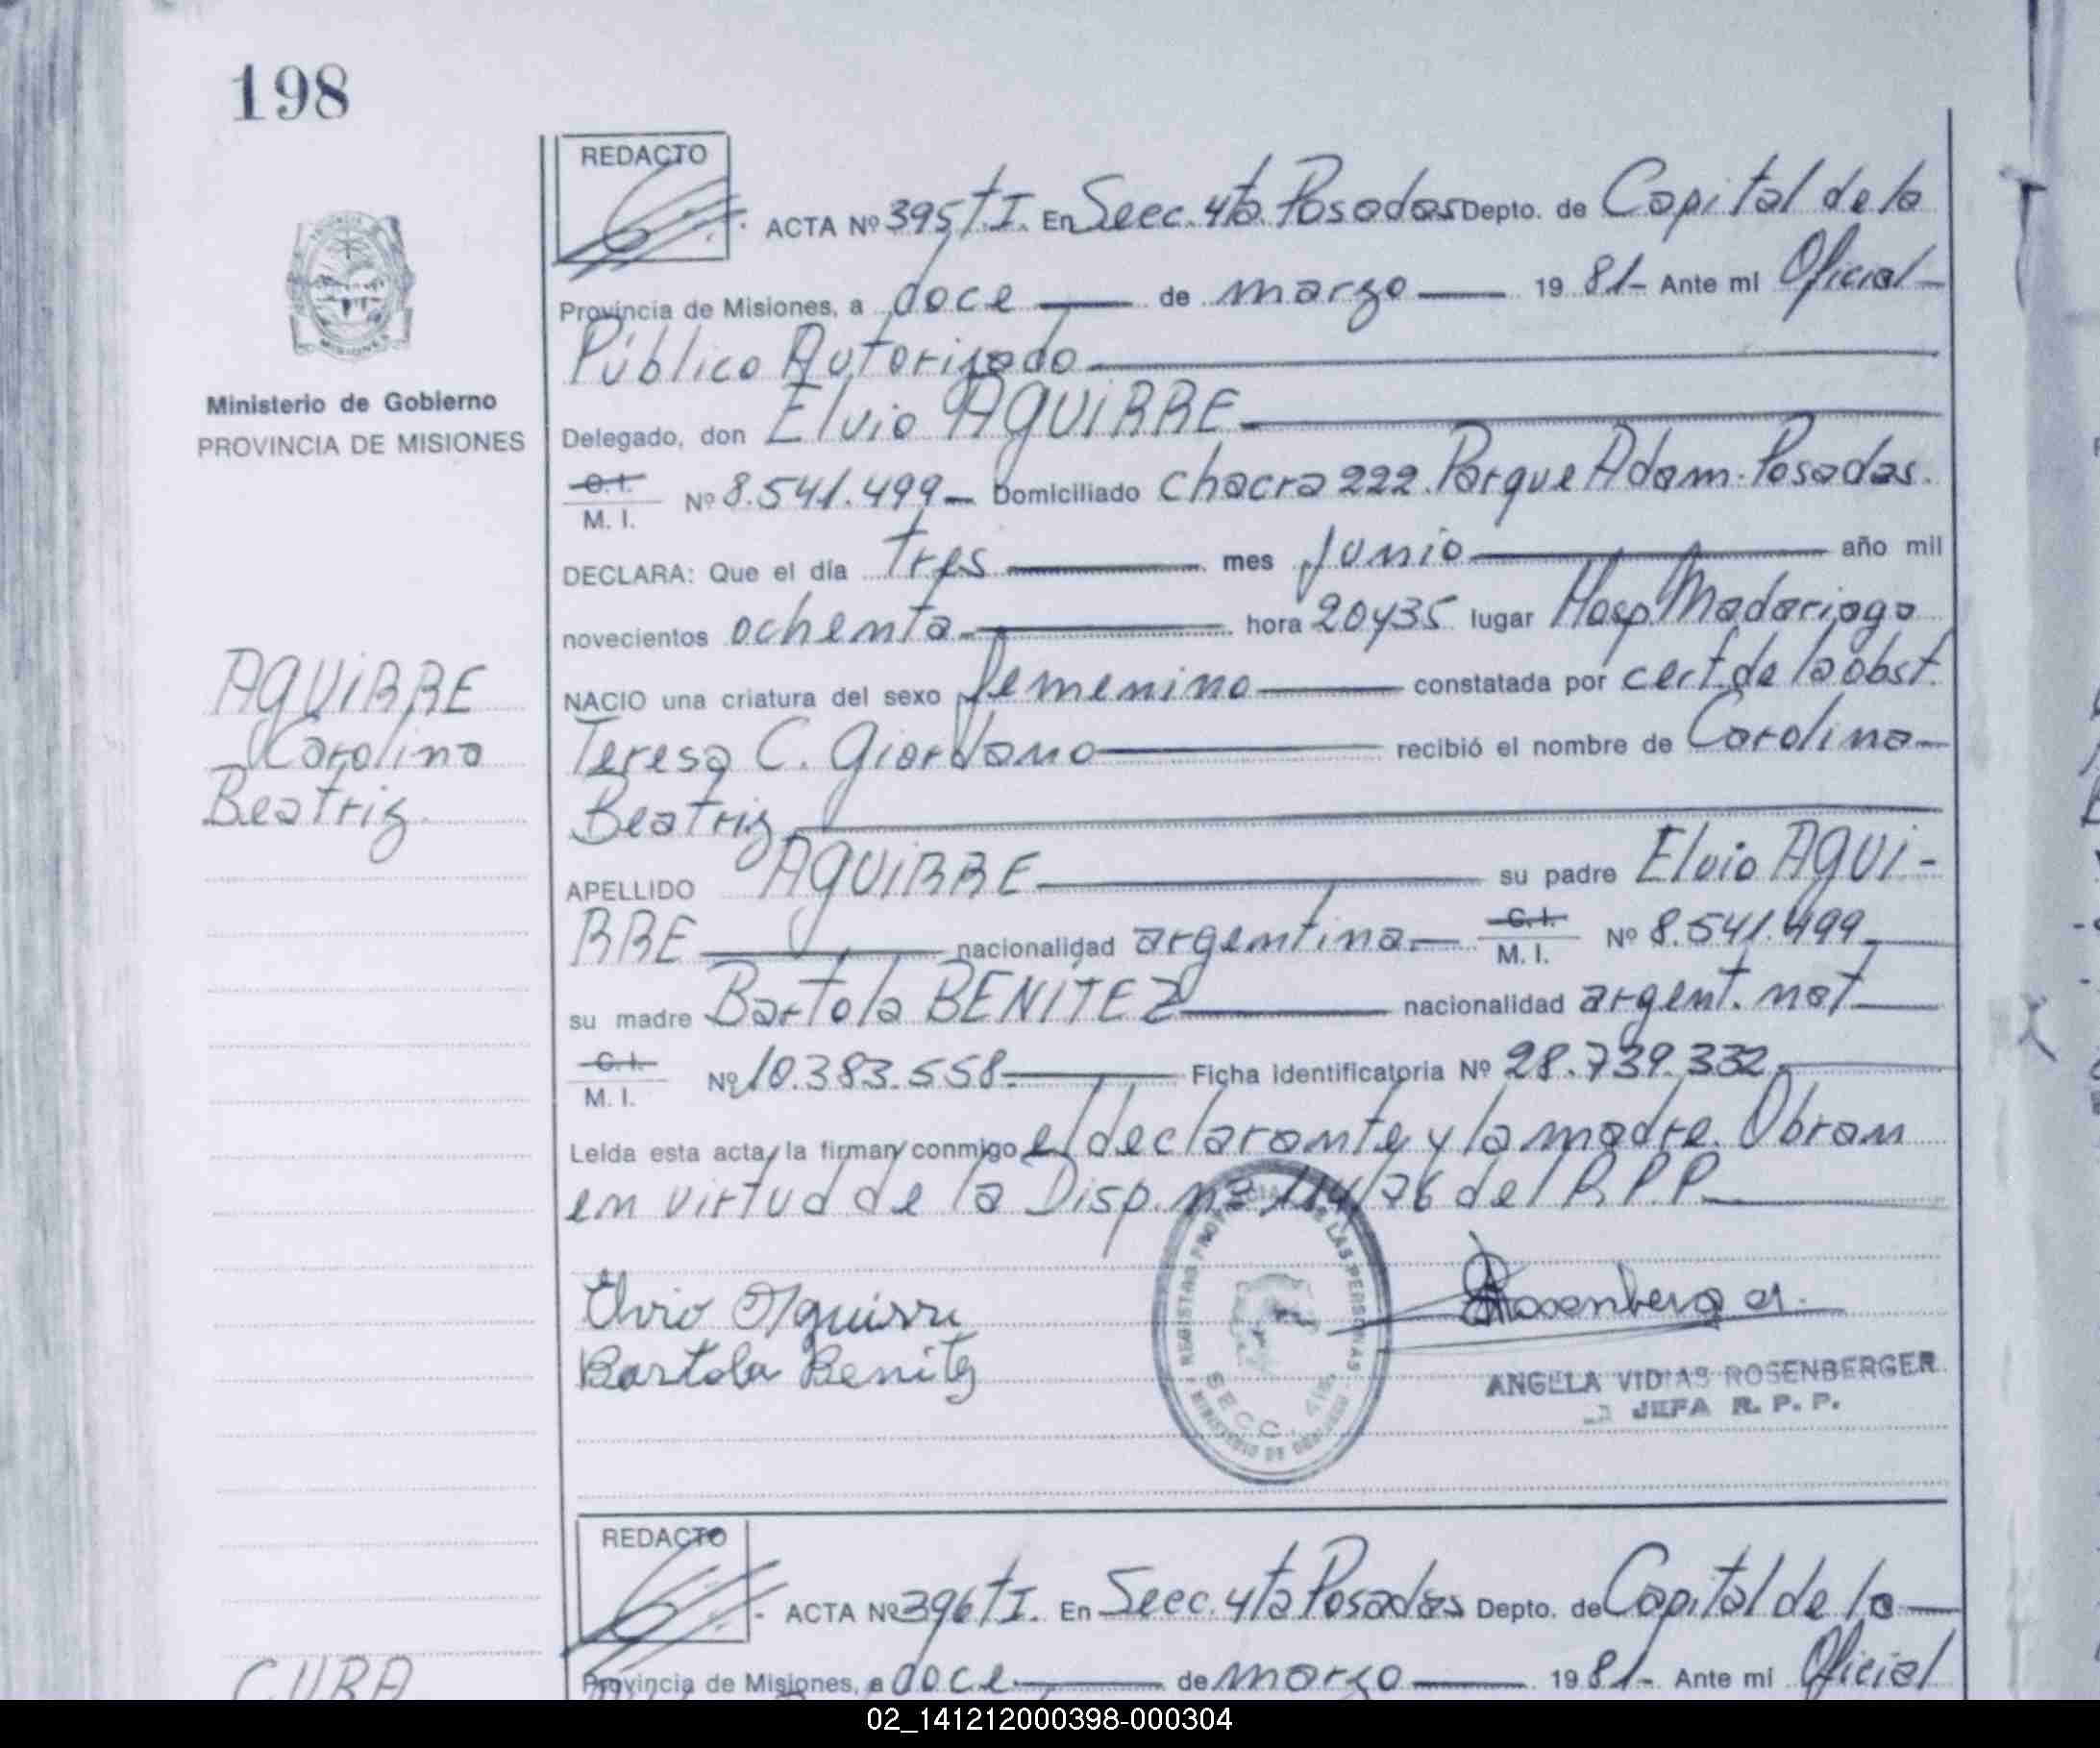 198
REDACTO
ACTA Nº 395/T.I. En Secc. 4ta. Posadas Depto. de Capital de la
Provincia de Misiones, a doce de marzo 19 81- Ante mi Oficial
Público Autorizado
Ministerio de Gobierno
PROVINCIA DE MISIONES
Delegado, don Elvio AGUIRRE
C. I.
M. I.
Nº 8.541.499 Domiciliado Chacra 222. Parque Adam. Posadas.
DECLARA: Que el día tres mes junio año mil
novecientos ochenta hora 20 y 35 lugar Hosp. Madariaga
AGUIRRE
Carolina
Beatriz
NACIO una criatura del sexo femenino constatada por cert. de la obst.
Teresa C. Giordano recibió el nombre de Carolina
Beatriz
APELLIDO AGUIRRE su padre Elvio AGUI-
RRE nacionalidad argentina C. I.
M. I.
Nº 8.541.499
su madre Bartola BENÍTEZ nacionalidad argent. nat
C. I.
M. I.
Nº 10.383.558. Ficha identificatoria Nº 28.739.332
Leída esta acta, la firman conmigo el declarante y la madre. Obran
en virtud de la Disp. nº 114/76 del R P P
Elvio Aguirre
Bartola Benitez
REGISTRO PROVINCIAL DE LAS PERSONAS
SECC. 4ta.
MINISTERIO DE GOBIERNO
ANGELA VIDIAS ROSENBERGER
JEFA R. P. P.
REDACTO
ACTA Nº 396/T.I. En Secc. 4ta Posadas Depto. de Capital de la
Provincia de Misiones, a doce de marzo 19 81- Ante mi Oficial
CUBA
02_141212000398-000304